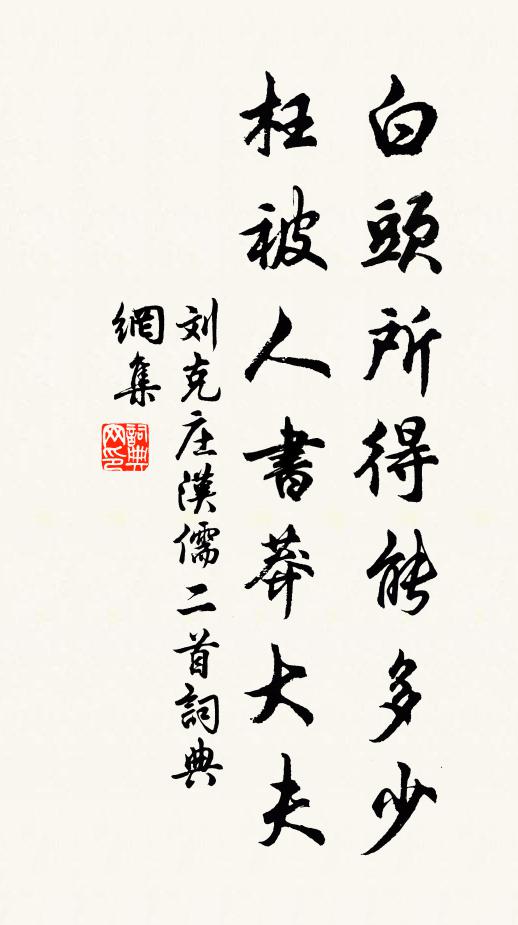 白頭所得能多少
枉被人書莽大夫
刘克庄漢儒二首詞典
網集
詞典网印